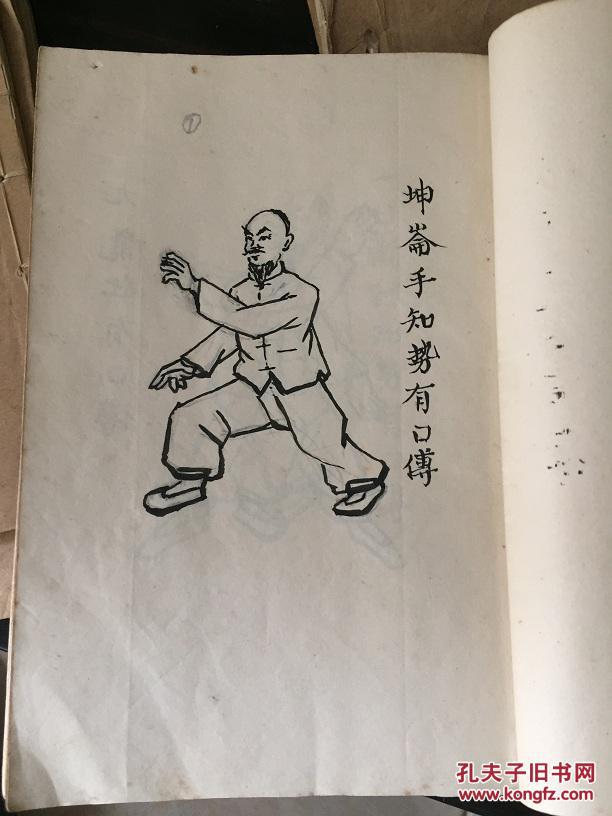 ①
坤崙手知勢有口傳
孔夫子旧书网
www.kongfz.com